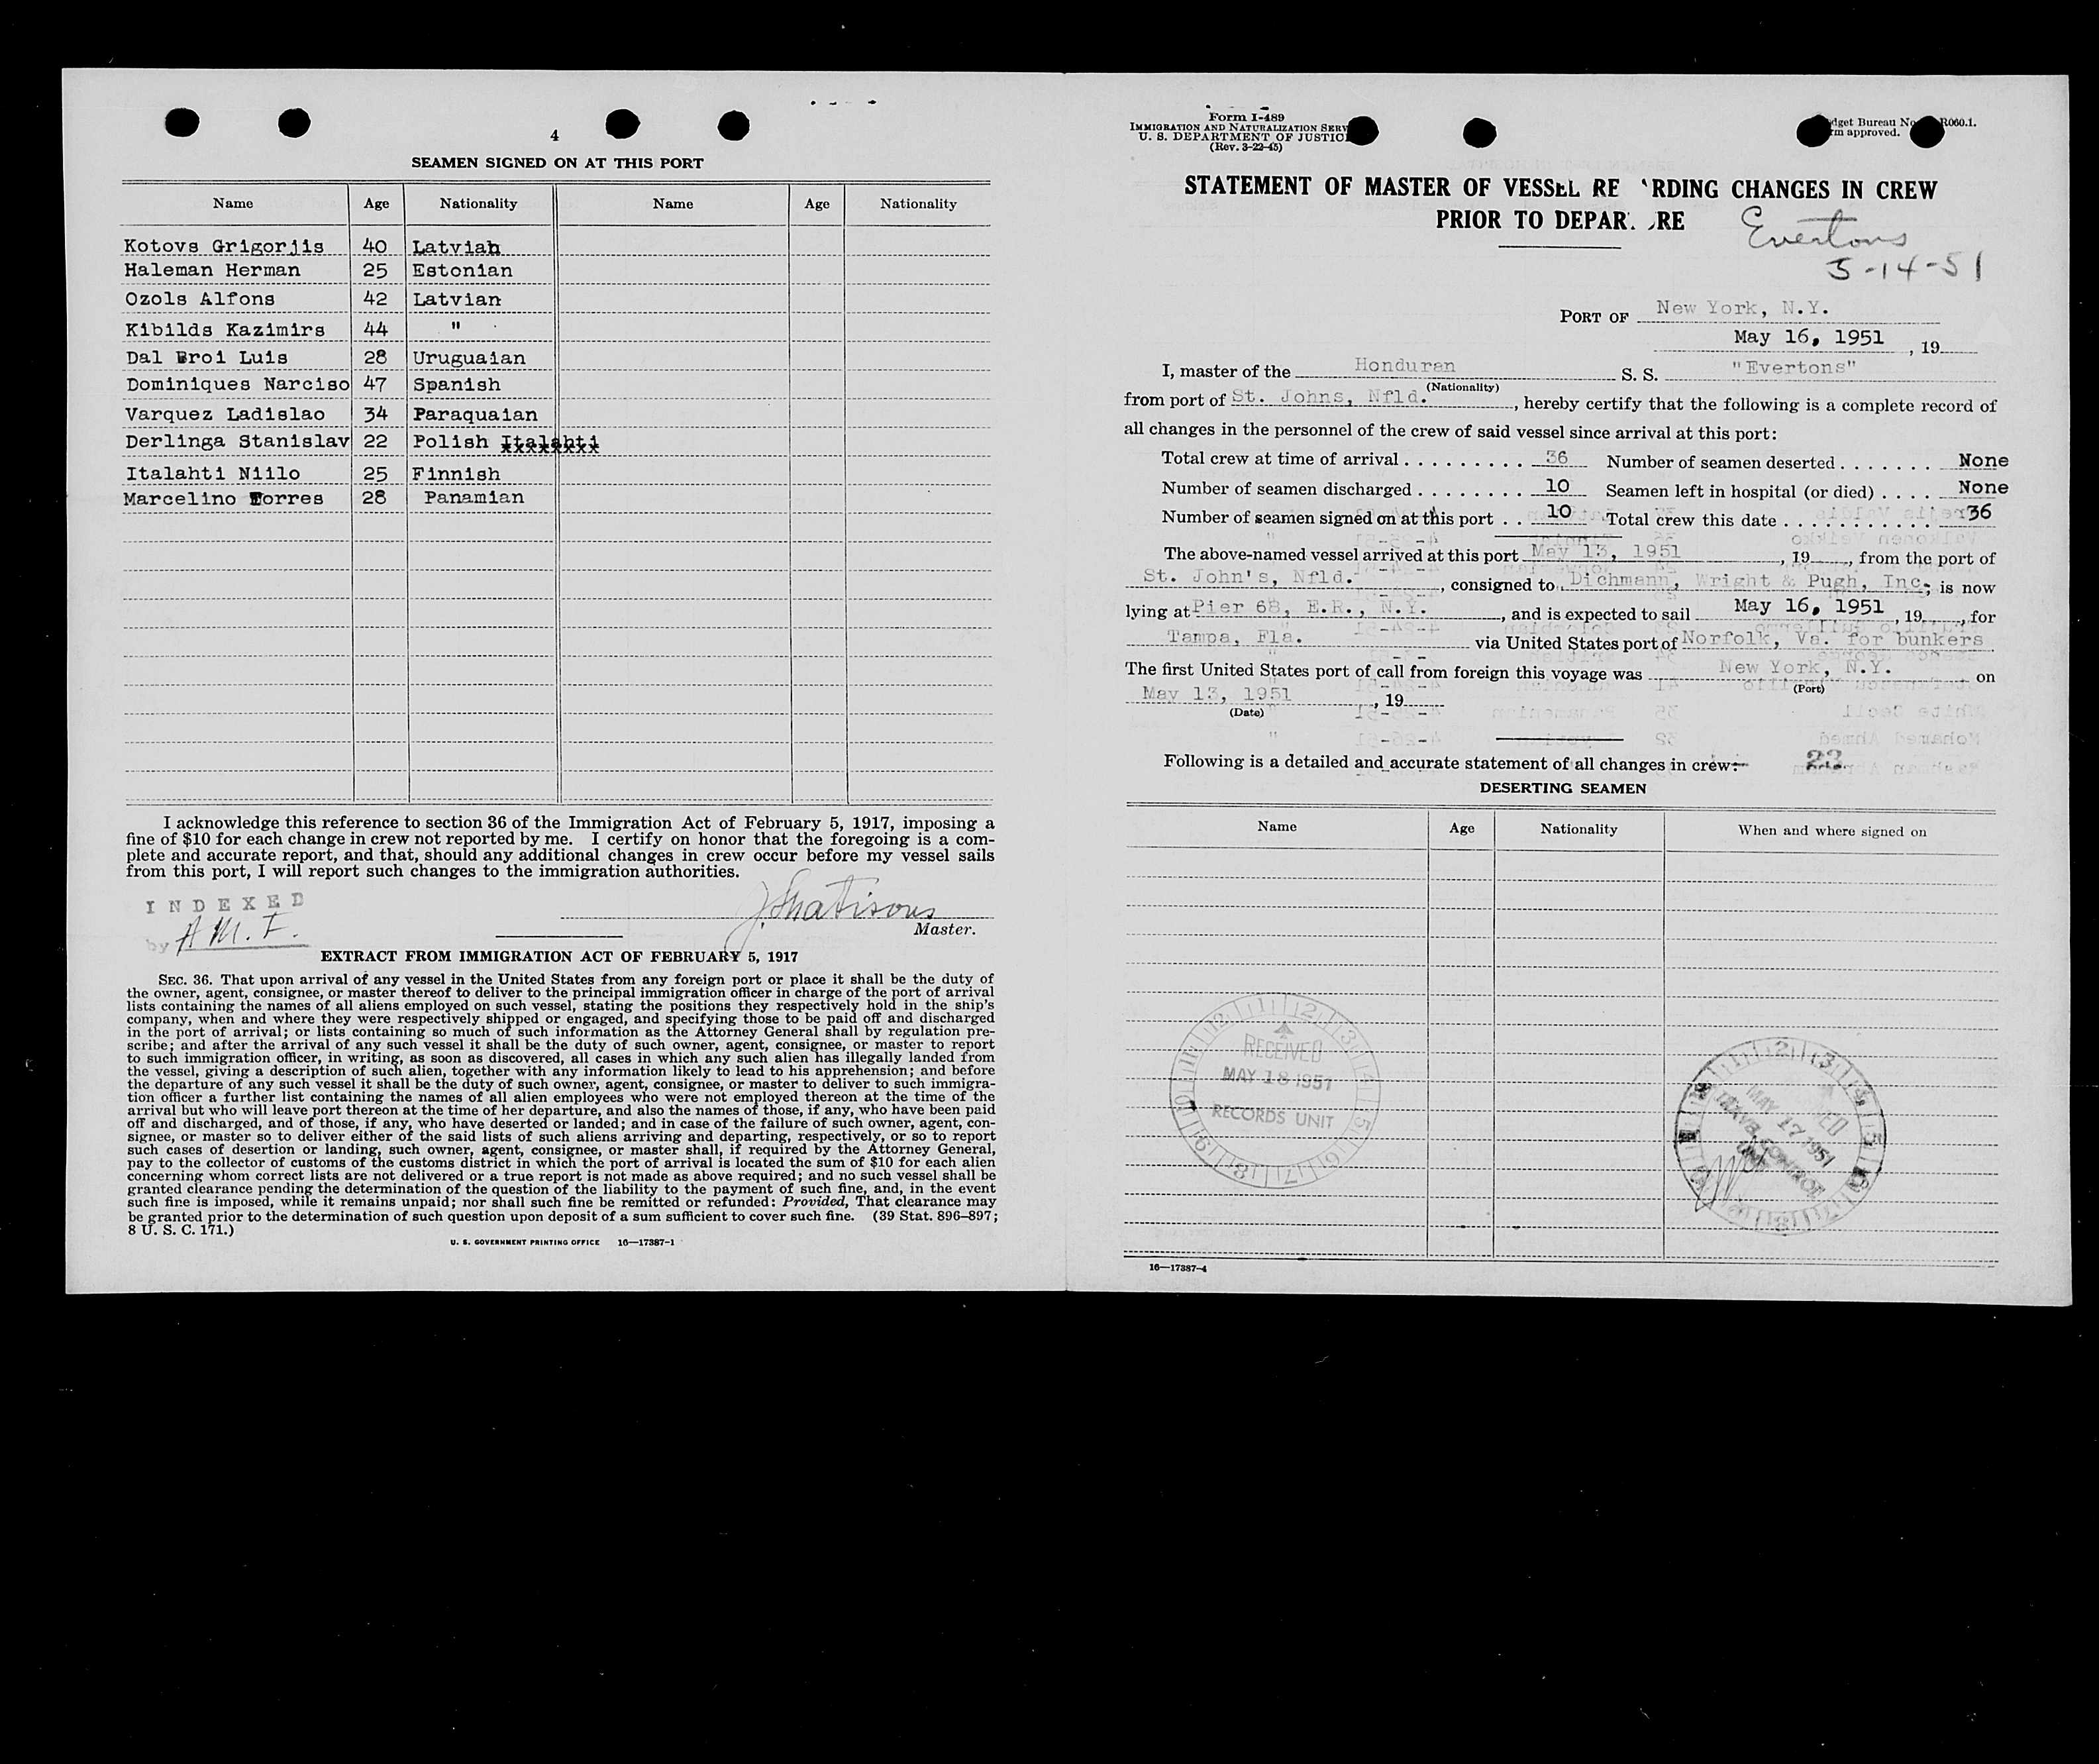 4
SEAMEN SIGNED ON AT THIS PORT
Name Age Nationality Name Age Nationality
Kotovs Grigorjis 40 Latvian
Haleman Herman 25 Estonian
Ozols Alfons 42 Latvian
Kibilds Kazimirs 44 "
Dal Broi Luis 28 Uruguaian
Dominiques Narciso 47 Spanish
Varquez Ladislao 34 Paraquaian
Derlinga Stanislav 22 Polish Italahti
Italahti Niilo 25 Finnish
Marcelino Torres 28 Panamian
I acknowledge this reference to section 36 of the Immigration Act of February 5, 1917, imposing a
fine of $10 for each change in crew not reported by me. I certify on honor that the foregoing is a com-
plete and accurate report, and that, should any additional changes in crew occur before my vessel sails
from this port, I will report such changes to the immigration authorities.
INDEXED
by A M. F.
Master.
EXTRACT FROM IMMIGRATION ACT OF FEBRUARY 5, 1917
SEC. 36. That upon arrival of any vessel in the United States from any foreign port or place it shall be the duty of
the owner, agent, consignee, or master thereof to deliver to the principal immigration officer in charge of the port of arrival
lists containing the names of all aliens employed on such vessel, stating the positions they respectively hold in the ship's
company, when and where they were respectively shipped or engaged, and specifying those to be paid off and discharged
in the port of arrival; or lists containing so much of such information as the Attorney General shall by regulation pre-
scribe; and after the arrival of any such vessel it shall be the duty of such owner, agent, consignee, or master to report
to such immigration officer, in writing, as soon as discovered, all cases in which any such alien has illegally landed from
the vessel, giving a description of such alien, together with any information likely to lead to his apprehension; and before
the departure of any such vessel it shall be the duty of such owner, agent, consignee, or master to deliver to such immigra-
tion officer a further list containing the names of all alien employees who were not employed thereon at the time of the
arrival but who will leave port thereon at the time of her departure, and also the names of those, if any, who have been paid
off and discharged, and of those, if any, who have deserted or landed; and in case of the failure of such owner, agent, con-
signee, or master so to deliver either of the said lists of such aliens arriving and departing, respectively, or so to report
such cases of desertion or landing, such owner, agent, consignee, or master shall, if required by the Attorney General,
pay to the collector of customs of the customs district in which the port of arrival is located the sum of $10 for each alien
concerning whom correct lists are not delivered or a true report is not made as above required; and no such vessel shall be
granted clearance pending the determination of the question of the liability to the payment of such fine, and, in the event
such fine is imposed, while it remains unpaid; nor shall such fine be remitted or refunded: Provided, That clearance may
be granted prior to the determination of such question upon deposit of a sum sufficient to cover such fine. (39 Stat. 896–897;
8 U. S. C. 171.)
U. S. GOVERNMENT PRINTING OFFICE 16—17387-1
Form I-489
IMMIGRATION AND NATURALIZATION SERV
U. S. DEPARTMENT OF JUSTIC
(Rev. 3-22-45)
dget Bureau No. R060.1.
rm approved.
STATEMENT OF MASTER OF VESSEL RE RDING CHANGES IN CREW
PRIOR TO DEPAR RE
Evertons
5-14-51
PORT OF New York, N.Y.
May 16, 1951, 19
I, master of the Honduran S. S. "Evertons"
(Nationality)
from port of St. Johns, Nfld., hereby certify that the following is a complete record of
all changes in the personnel of the crew of said vessel since arrival at this port:
Total crew at time of arrival 36 Number of seamen deserted None
Number of seamen discharged 10 Seamen left in hospital (or died) None
Number of seamen signed on at this port 10 Total crew this date 36
The above-named vessel arrived at this port May 13, 1951, 19, from the port of
St. John's, Nfld., consigned to Dichmann, Wright & Pugh, Inc., is now
lying at Pier 68, E.R., N.Y., and is expected to sail May 16, 1951, 19, for
Tampa, Fla. via United States port of Norfolk, Va. for bunkers
The first United States port of call from foreign this voyage was New York, N.Y. on
(Port)
May 13, 1951, 19
(Date)
Following is a detailed and accurate statement of all changes in crew: 22
DESERTING SEAMEN
Name Age Nationality When and where signed on
RECEIVED
MAY 18 1951
RECORDS UNIT
MAY 17 1951
16—17387-4